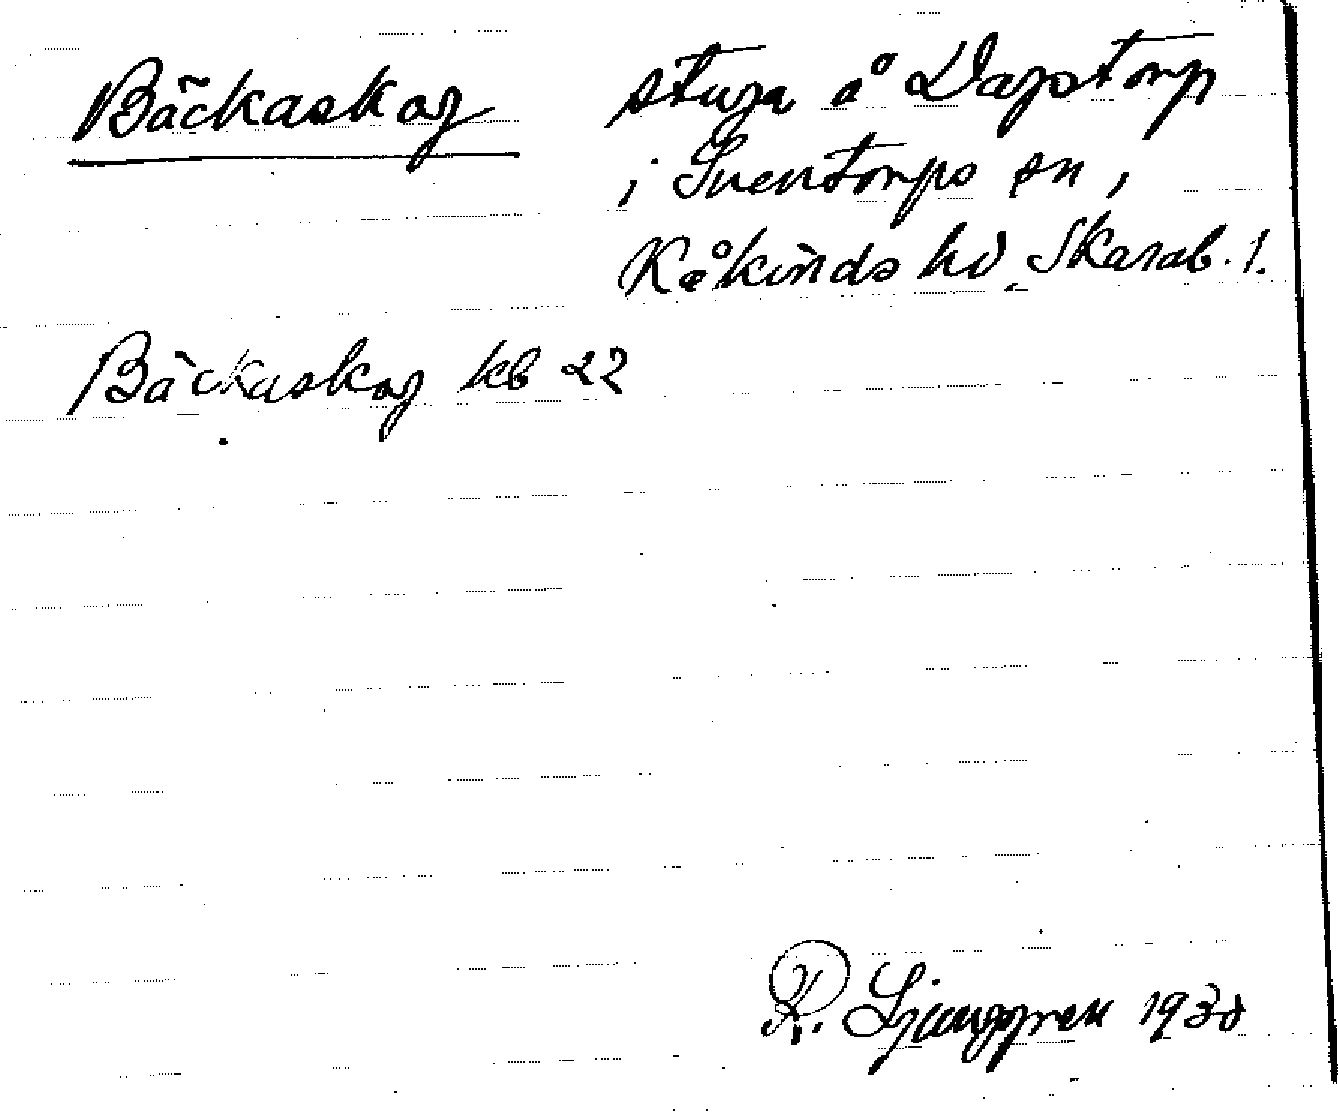 Bäckaskog stuga å Dagstorp
i Sventorps sn,
Kåkinds hd, Skarab. l.
Bäckaskog kb 22
R. Ljunggren 1930